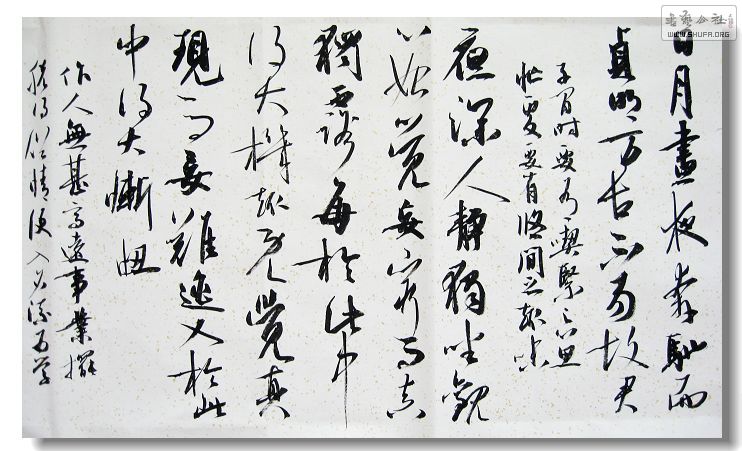 日月晝夜奔馳而
貞明万古不易故君
子闲时要有喫緊心思
忙處要有悠间之趣味
夜深人静獨坐觀
心始觉妄窮而真
獨露每於此中
得大機趣既覺真
現而妄難逃又於此
中得大慚忸
作人無甚高遠事業擺
脱得俗情便入名流为学
书艺公社
WWW.SHUFA.ORG